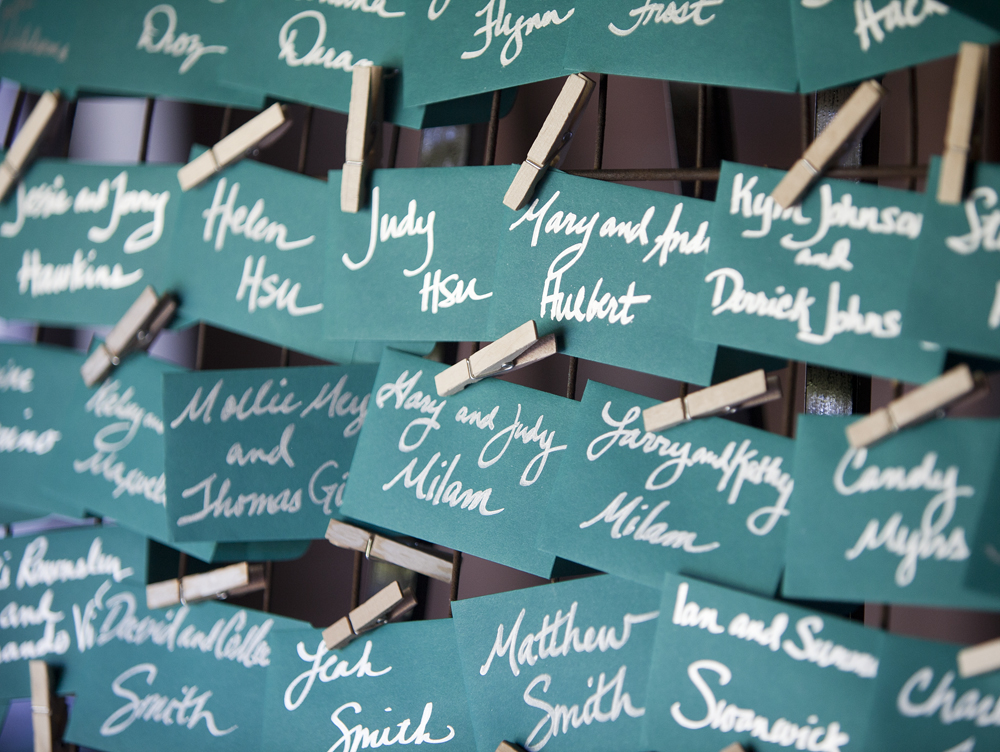 Droz
Duran
Flynn
Frost
Josie and Jerry
Hawkins
Helen
Hsu
Judy
Hsu
Mary and And
Hulbert
Kym Johnson
and
Derrick Johns
Mollie Mey
and
Thomas Gi
Hary and Judy
Milam
Larry and Kathy
Milam
Candy
Myhs
and
David and Collee
Smith
Leah
Smith
Matthew
Smith
Ian and Susan
Swanwick